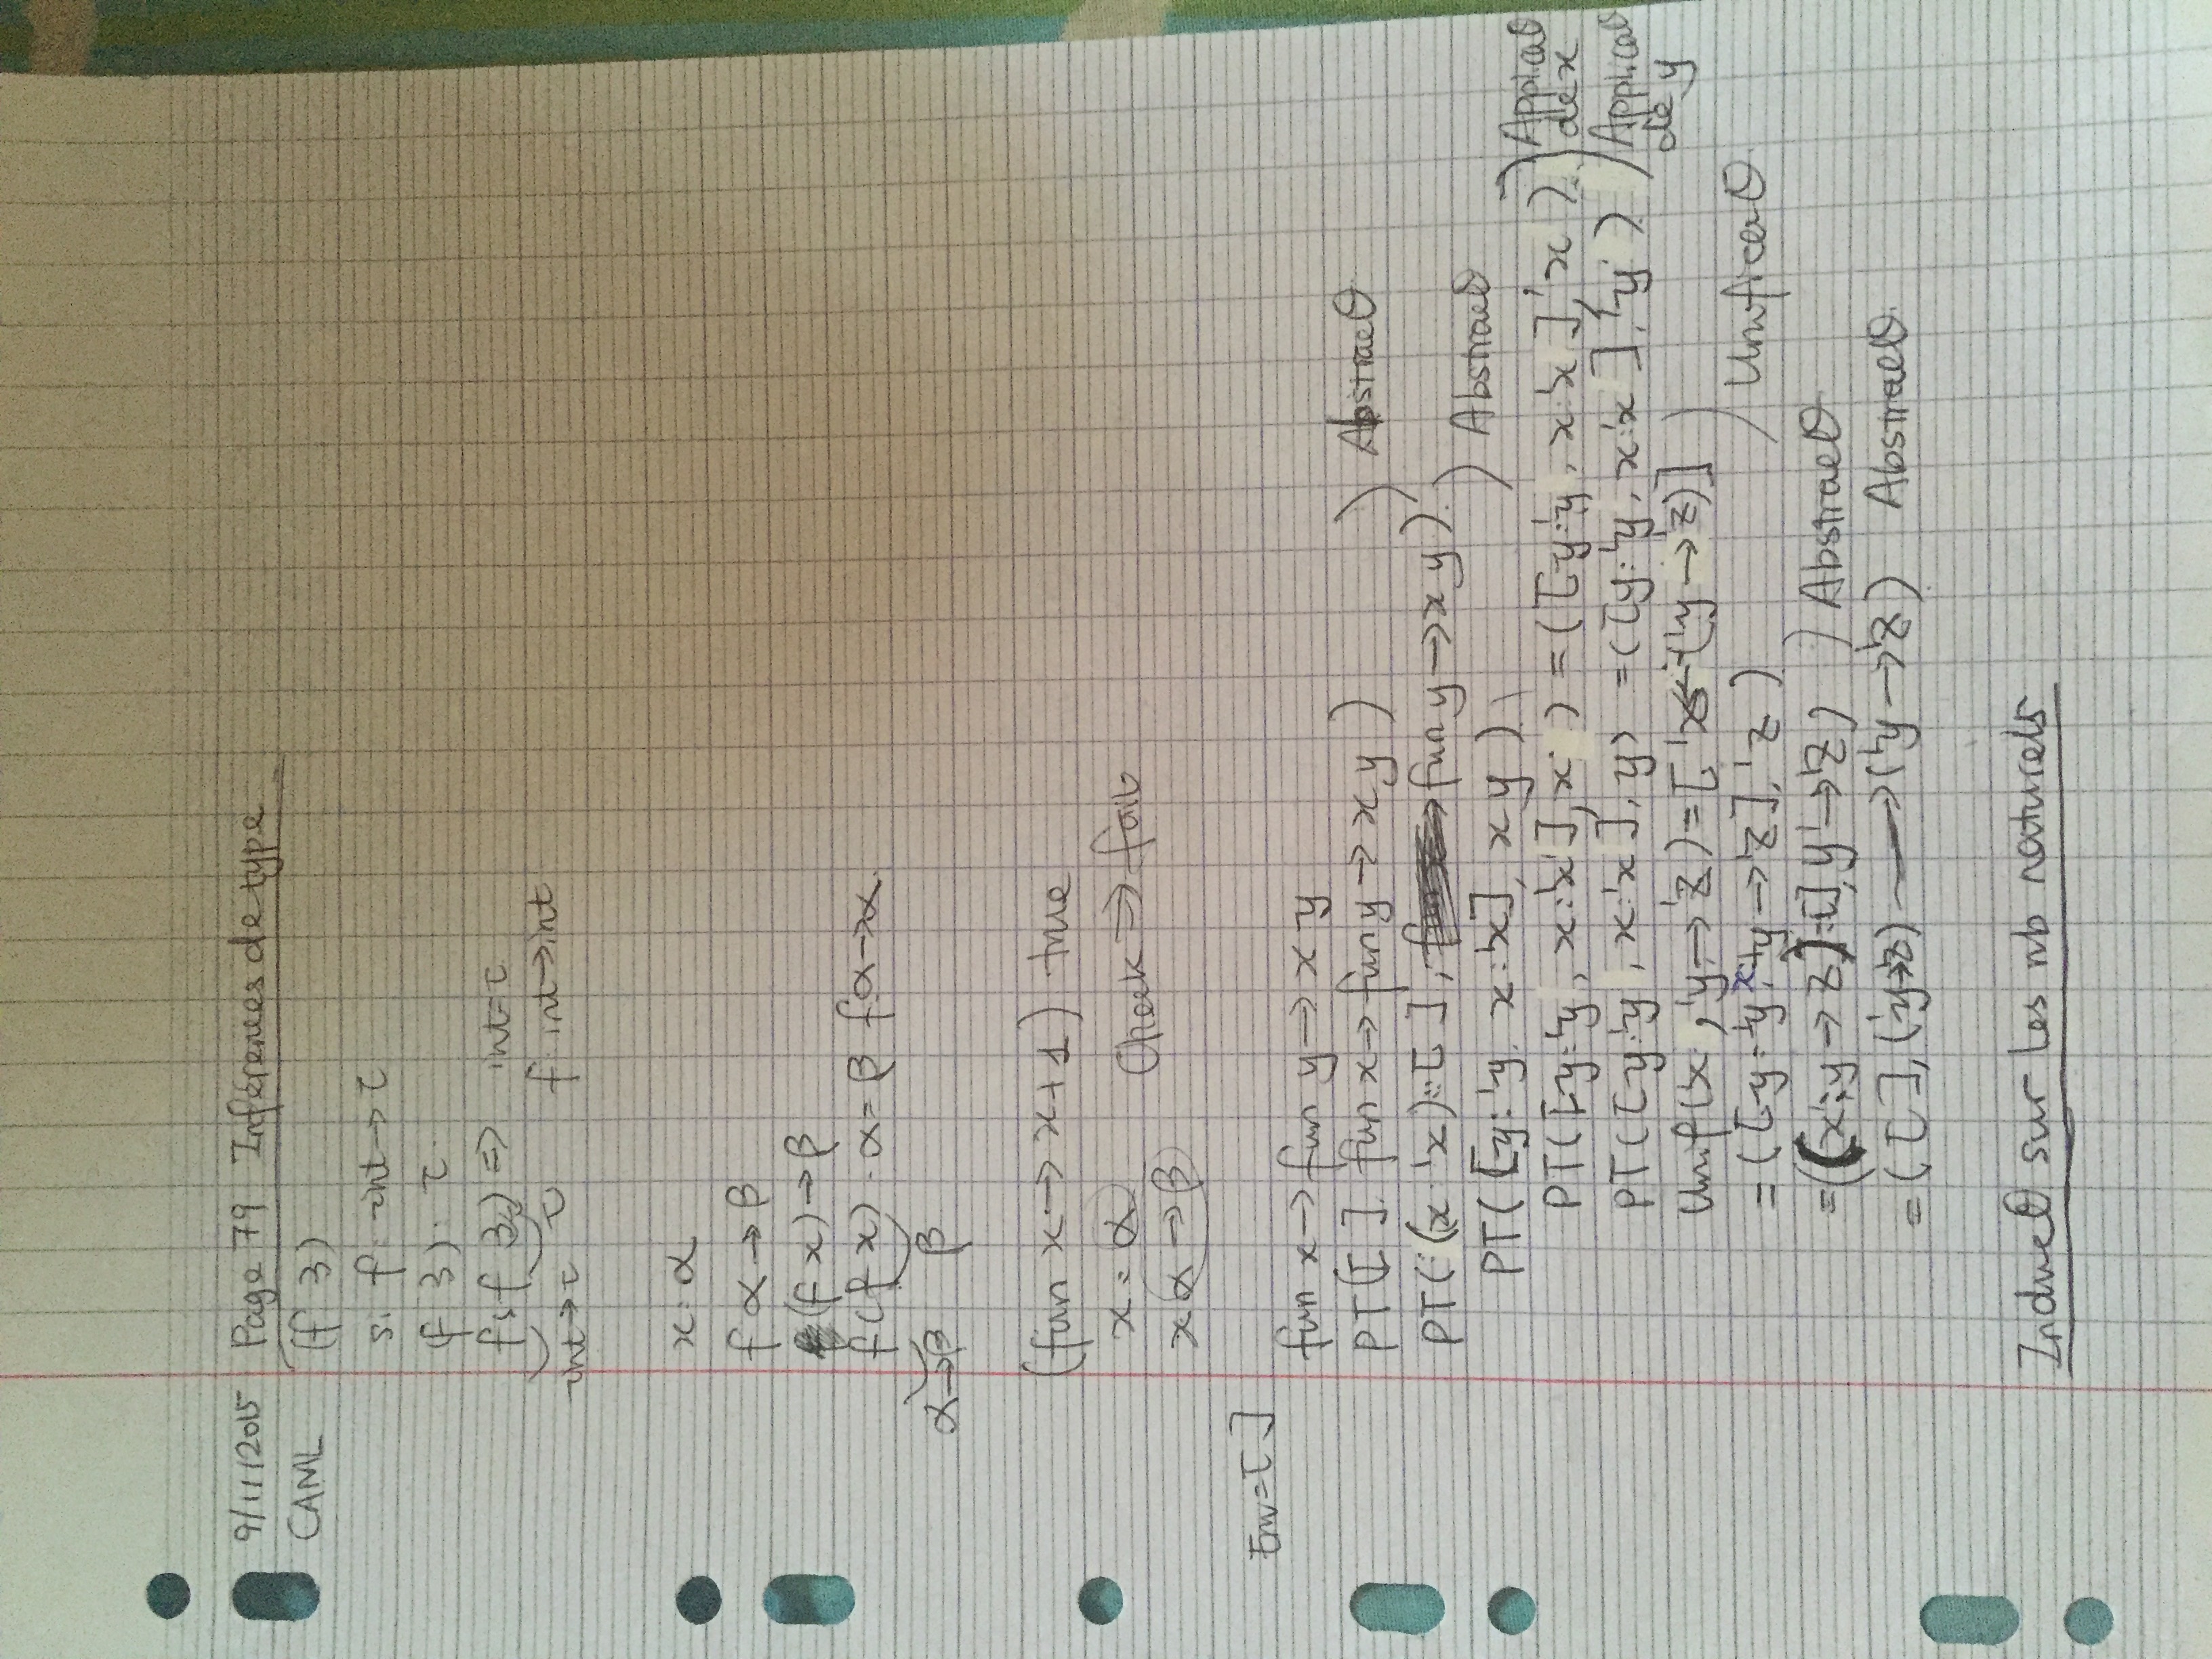 9/11/2015 Page 79 Inférences de type
CAML (f 3)
si f: int → τ
(f 3): τ
f (f 3) => int = τ
int → τ τ f: int → int
x: α
f α → β
(f x) → β
f(f x) · α = β f α → α.
α → β β
(fun x → x + 1) true
x: α Check => fail
x α → β
Env = [ ]
fun x → fun y → x y
PT([ ], fun x → fun y → x y ) ) Abstracθ
PT( (x: 'x)::[ ], fun y → x y ). ) Abstracθ
PT( [y: 'y, x: 'x], x y )
PT([y: 'y, x: 'x], x ) = ([y: 'y, x: 'x], 'x ) ) Applicaθ de x
PT([y: 'y, x: 'x], y) = ([y: 'y, x: 'x ], 'y ) ) Applicaθ de y
Unif('x , 'y → 'z) = [ 'x ← ('y → 'z)]
= ([y: 'y, x: 'y → 'z], 'z ) ) Unificaθ
= ((x: 'y → z)::[], y' → 'z) ) Abstracθ
= ([ ], ('y → 'z) → ('y → 'z) ) Abstracθ.
Inducθ sur les nb naturels